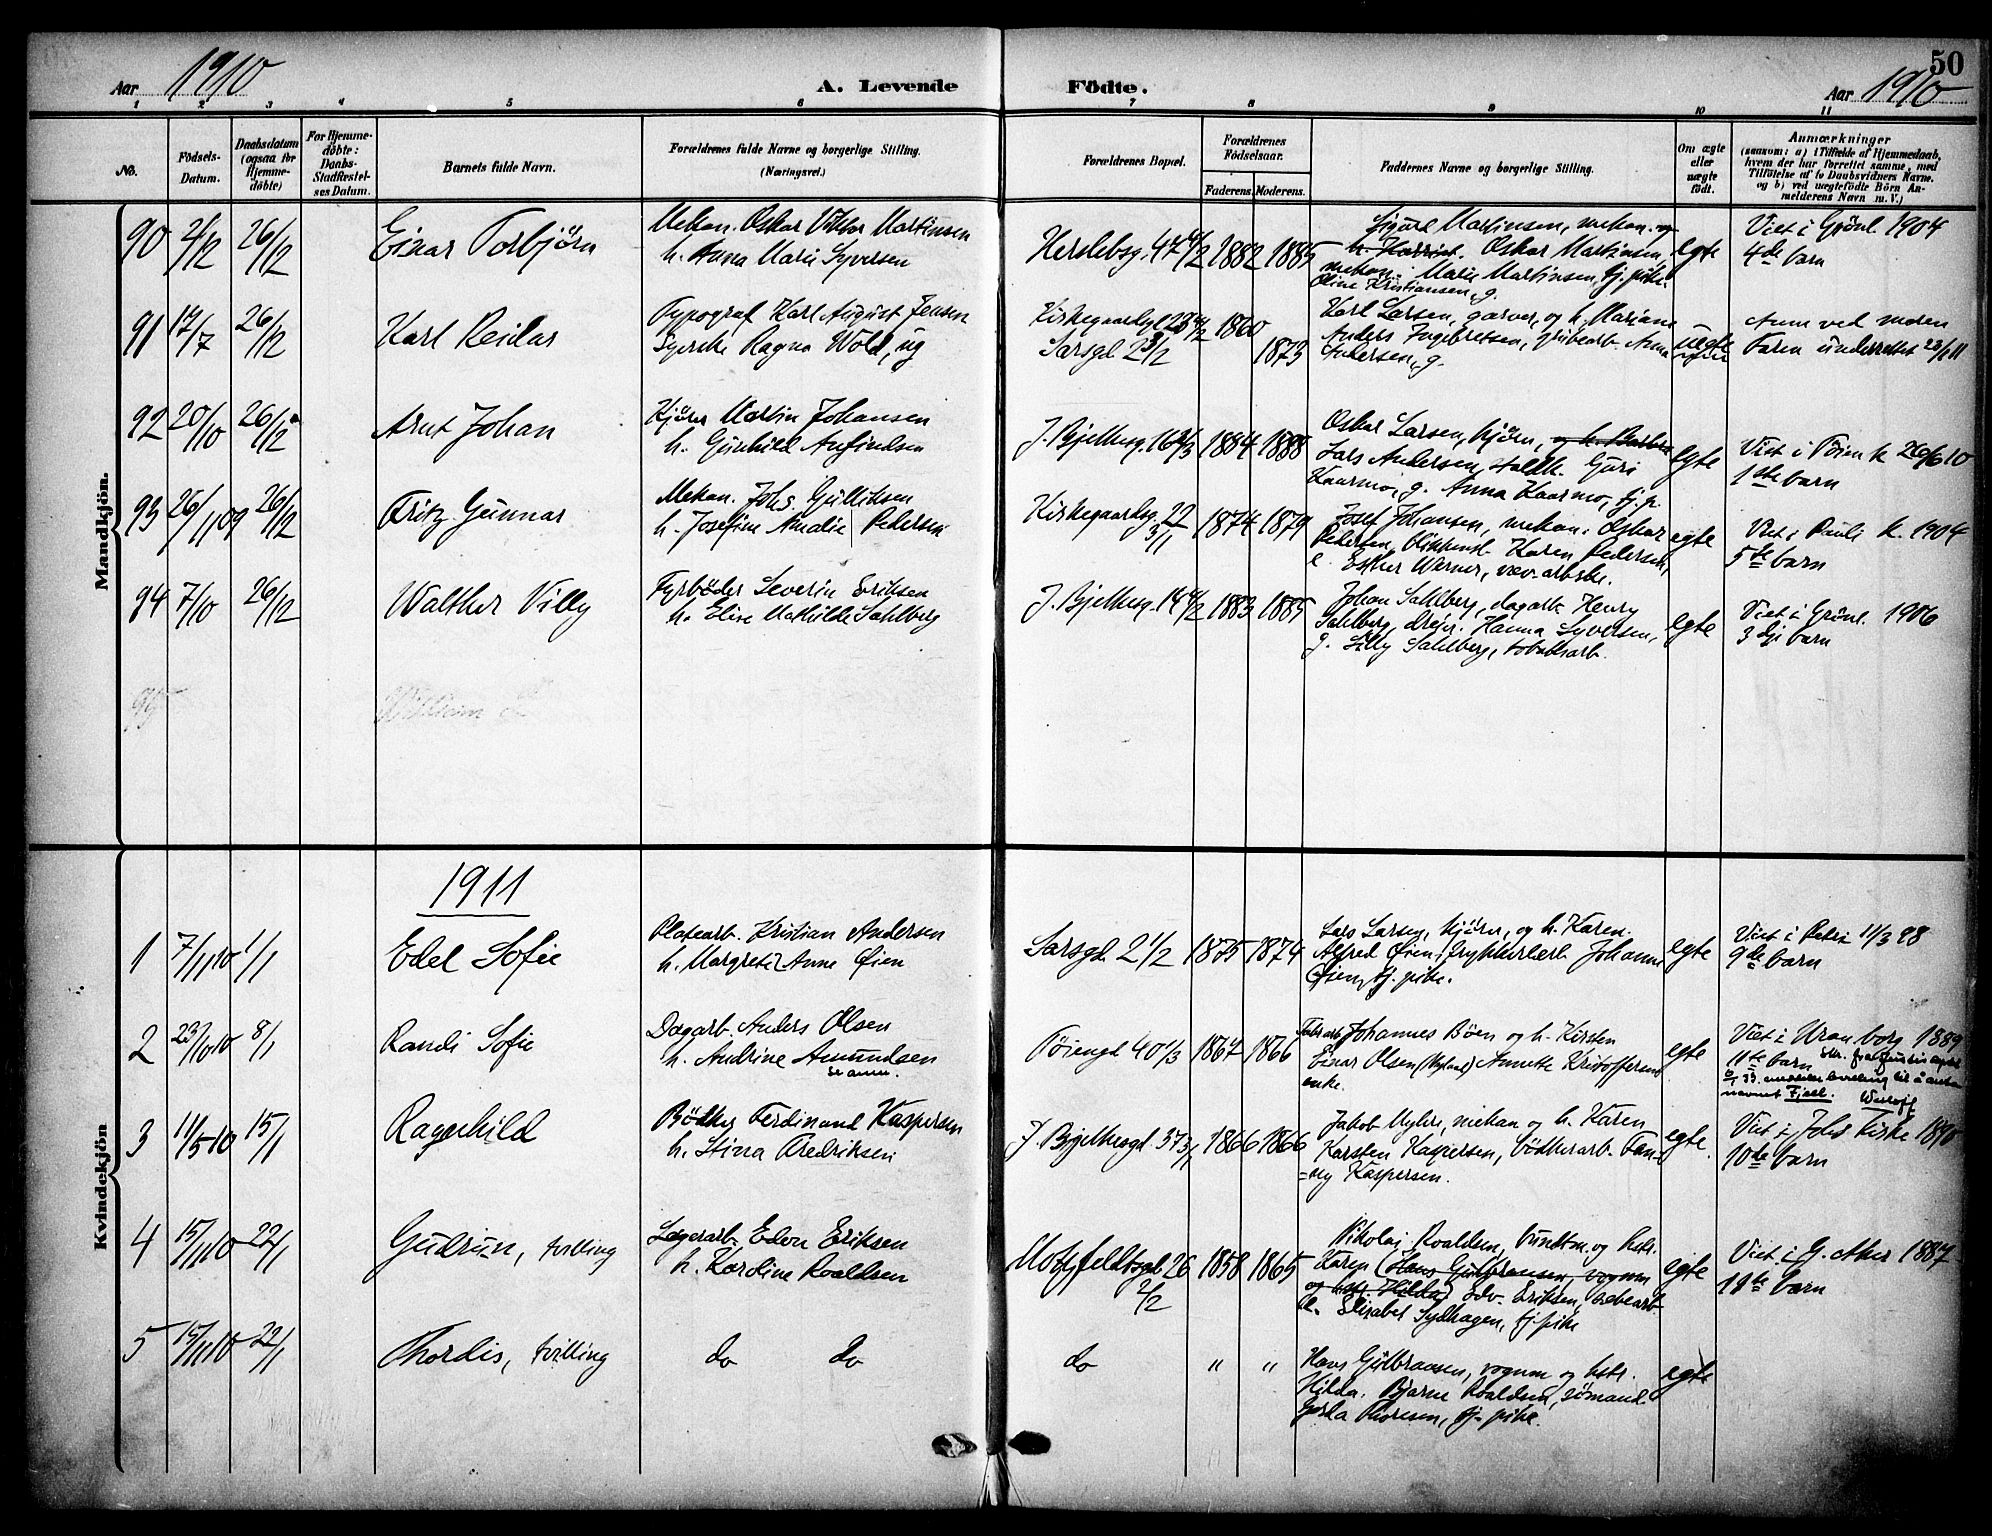 50
Aar 1910
A. Levende
Födte.
Aar 1910
1 2 3 4 5 6 7 8 9 10 11
No.
Födsels-
Datum.
Daabsdatum
(ogsaa for
Hjemme-
döbte)
For Hjemme-
döbte:
Daabs-
Stadfæstel-
ses Datum.
Barnets fulde Navn.
Forældrenes fulde Navne og borgerlige Stilling.
(Næringsvei.)
Forældrenes Bopæl.
Forældrenes
Födselsaar.
Faderens.
Moderens.
Faddernes Navne og borgerlige Stilling.
Om ægte
eller
uægte
födt.
Anmærkninger
(saasom: a) i Tilfælde af Hjemmedaab,
hvem der har forrettet samme, med
Tilföielse af to Daabsvidners Navne,
og b) ved uægtefödte Börn An-
melderens Navn m. V.)
Mandkjön.
90 2/12 26/12 Einar Torbjørn
Mekan. Oskar Viktor Martinsen
h. Anna Marie Syversen
Herslebsg. 47 4/2 1882 1885
Sigurd Martinsen, mekan. og
h. Harriet. Oskar Martinsen,
mekan. Marie Martinsen, tj. pike.
Oline Kristiansen, g.
egte
Viet i Grønl 1904
4de barn
91 17/7 26/12 Karl Reidar
Typograf Karl August Jensen
Syerske Ragna Wold, ug
1860
Sarsgd 2 3/2 1873
Karl Larsen, garver, og h. Mariane
Anders Ingebretsen, grubearb. Anna
Andersen, g.
uegte
Anm ved moren
Faren underrettet 23/1 11
92 20/10 26/12 Arnt Johan
Kjører Martin Johansen
h. Gunhild Anfindsen
J. Bjelkesg. 16 1884 1888
Oskar Larsen, kjører, og h. Barbra
Lars Andersen, staldk. Guri
Kaarmo, g. Anna Kaarmo, tj. p.
egte
Viet i Tøien k 26/6 10
1ste barn
93 26/11 09 26/12 Fritz Gunnar
Mekan. Johs. Gulliksen
h. Josefine Amalie Pedersen
Kirkegaardsg. 22 3/1 1874 1879
Josef Johansen, mekan. Oskar
Pedersen, blikkensl. Karen Pedersen,
e. Esther Werner, væv. arbske.
egte
Viet i Pauli k. 1904
5te barn
94 7/10 26/12 Walther Villy
Fyrbøder Severin Eriksen
h. Elise Mathilde Sahlberg
J. Bjelkesg. 14 4/2 1883 1885
Johan Sahlberg, dagarb. Henry
Sahlberg, dreier. Hanna Syversen,
g. Lilly Sahlberg, tobaksarb.
egte
Viet i Grønl. 1906
3dje barn
95 William
Kvindekjön
1911
1 7/11 10 1/1 Edel Sofie
Platearb. Kristian Andersen
h. Margrete Anne Øien
Sarsgd 2 1/2 1875 1874
Lars Larsen, kjører, og h. Karen.
Alfred Øien, trykkerlærl. Johanne
Øien, tj. pike.
egte
Viet i Petri 11/3 98
9de barn
2 23/10 10 8/1 Randi Sofie
Dagarb. Anders Olsen
h. Andrine Amundsen
Tøiengt 40 1/3 1867 1866
Fabr.arb Johannes Bøen og h. Kirsten
Einar Olsen Annette Kristoffersen
enke.
egte
Viet i Uranborg 1889
11te barn
navnet Fjell.
3 11/5 10 15/1 Ragnhild
Bødker Ferdinand Kaspersen
h. Stina Fredriksen
J. Bjelkesgd 37 3/1 1866 1866
Jakob Myhre, mekan og h. Karen
Karsten Kaspersen, bødkerarb. Fan-
=ny Kaspersen.
egte.
Viet i Johs kirke 1890
10de barn
4 15/11 10 22/1 Gudrun, tvilling
Lagerarb. Edv. Eriksen
h. Karoline Roaldsen
Motzfeldtsgd 26 2/2 1858 1865
Nikolaj Roaldsen, bundtm. og hstr.
Karen (Hans Gulbransen, vognm
og hstr. Hilda) Edv. Eriksen, sæbearb.
Elisabet Sydhagen, tj. pike
egte
Viet i G. Aker 1887
11te barn
5 15/11 10 22/1 Thordis, tvilling
do do
do " "
Hans Gulbransen, vognm og hstr.
Hilda. Bjarne Roaldsen, sømand.
Gerda Thoresen, tj. pike.
egte